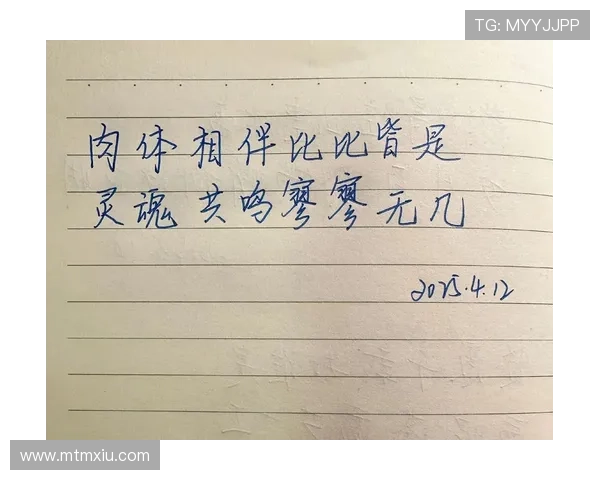 TG: MYYJJPP
肉体相伴比比皆是
灵魂共鸣寥寥无几
2025.4.12
www.mtmxiu.com